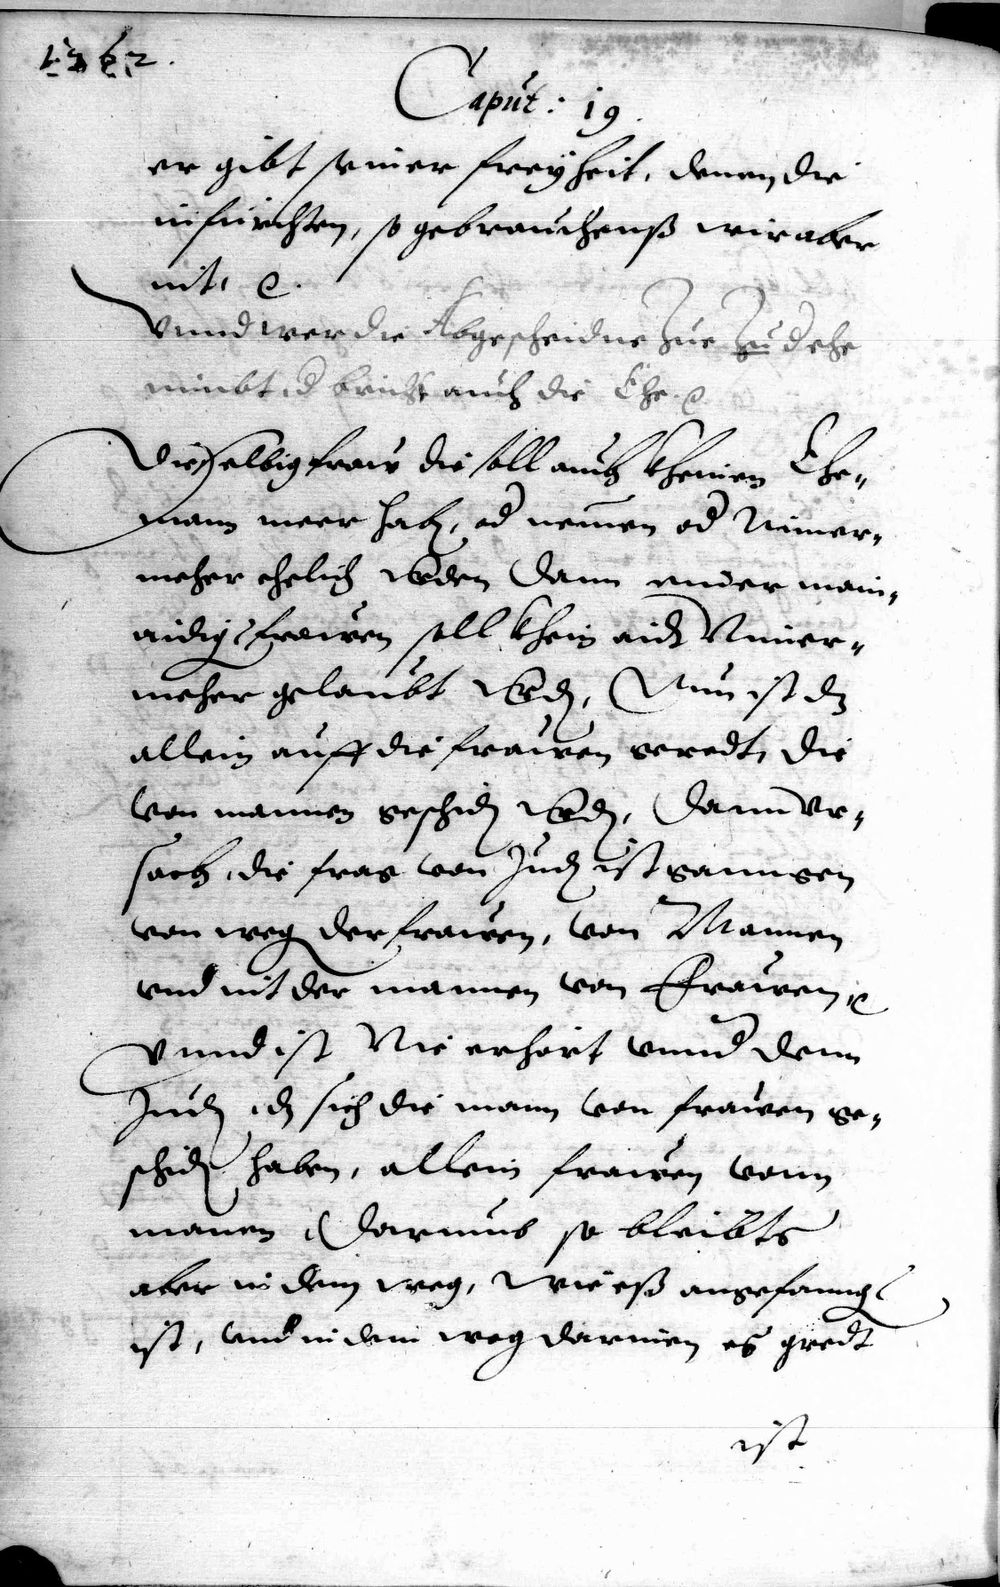 1362.
Caput: 19.
er gibt seiner freÿheit, denen die
in fürchten, so gebrauchenß wir aber
nit, ꝛc.
Vnnd wer die Abgescheidne Zue Zu d ehe
nimbt, d bricht auch die Ehe. ꝛc
Dieselbig fraw die soll auch kheinen Ehe-
mann meer hab, od nemen od Nimer-
meher ehelich werden Dann einer main-
aidig frawen soll khein aidt Nimer-
meher gelaubt werd, Nun ist dz
allein auff die frawen geredt, die
von mannen geschid werd, Dann vr-
sach, die frag von Jud ist ganngen
von weg der frawen, von Mannen
vnd nit der mannen von Frawen, ꝛc
Vnnd ist Nie erhört vnnd denn
Jud, dz sich die mann von frawen ge-
schid haben, allein frawen vonn
manen, Darumb so bleibts
aber in dem weg, wie eß angefanng
ist, vnd in dem weg darinen es gredt
ist